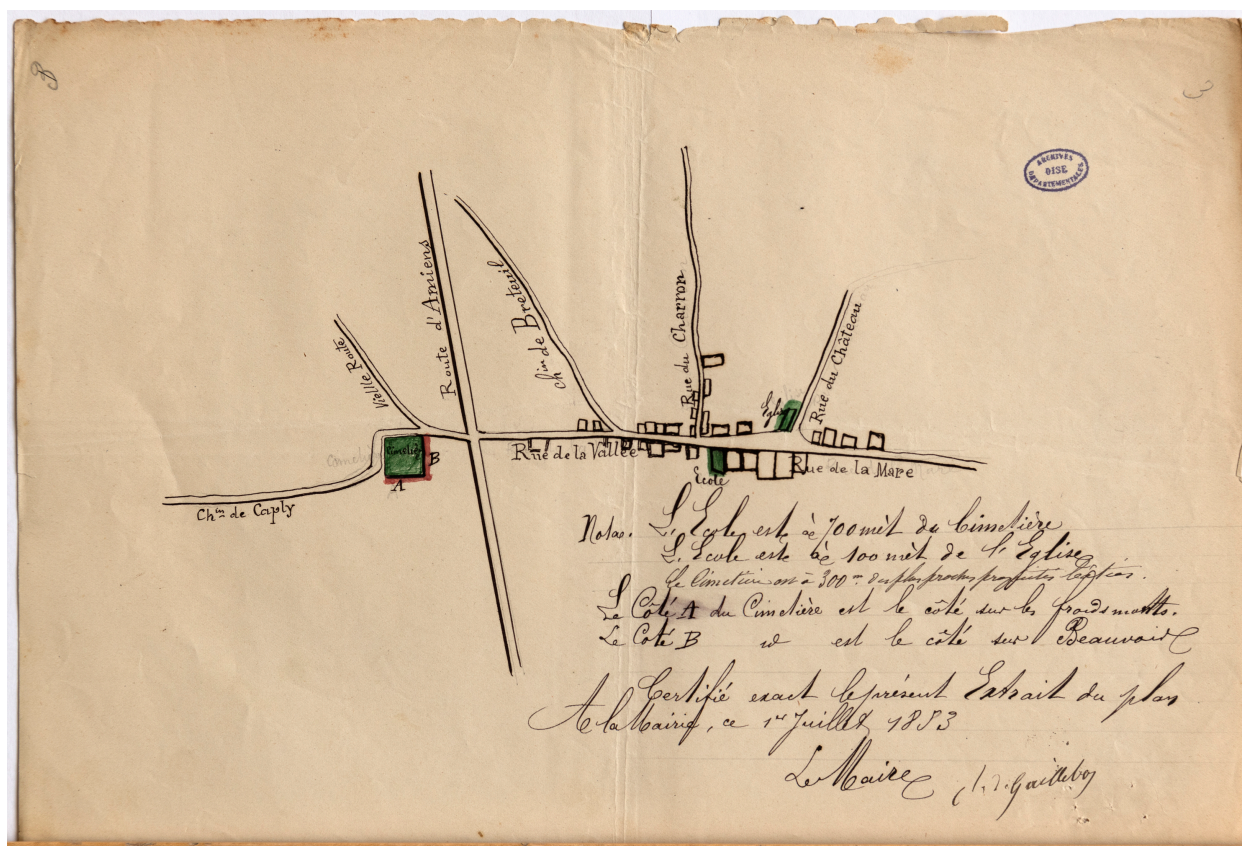 B
3
ARCHIVES
OISE
DÉPARTEMENTALES
Route d'Amiens
Ch.in de Breteuil
Rue du Charron
Rue du Château
Vieille Route
Eglise
Cimetière
B
A
Rue de la Vallée
Ecole
Rue de la Mare
Ch.in de Caply
Notas. L'Ecole est à 700 mèt du Cimetière
L'Ecole est à 100 mèt de l'Eglise
Le Cimetière est à 300m des plus proches propriétés bâties.
Le Côté A du Cimetière est le côté sur les froidsmonts.
Le Coté B id est le côté sur Beauvoir
Certifié exact le présent Extrait du plan
A la Mairie, ce 1er Juillet 1883
Le Maire